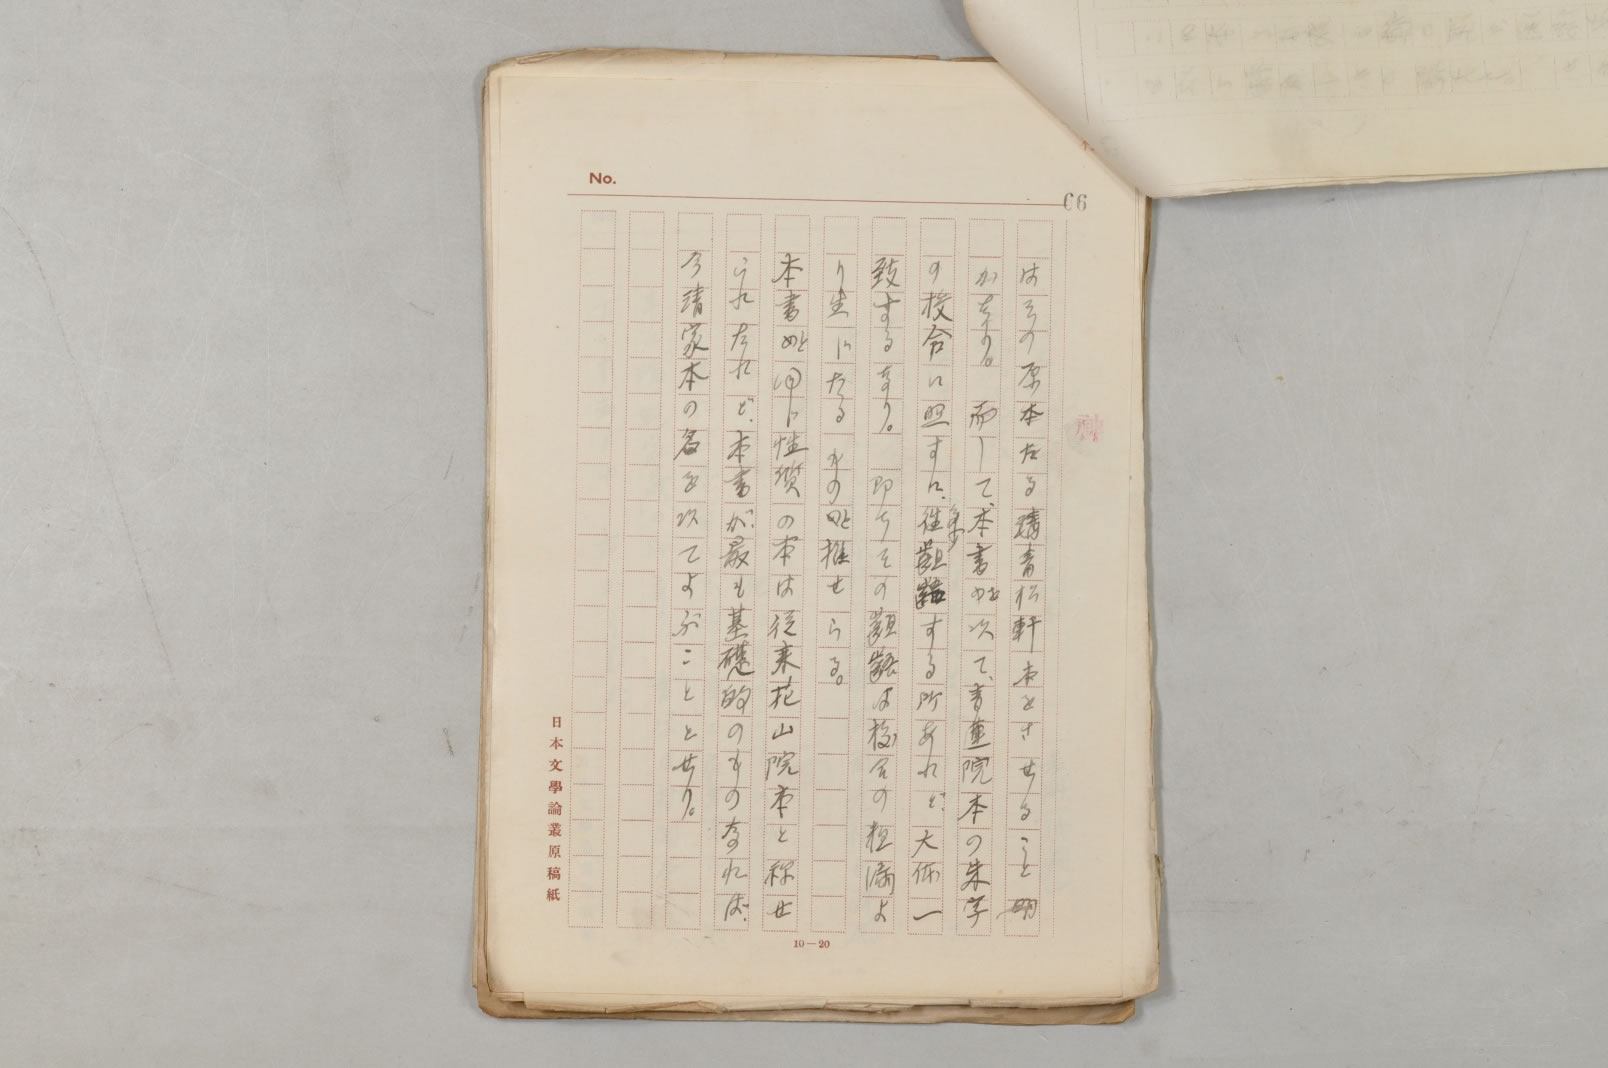 No.
66
はその原本たる講青松軒本とさせること明
かなり。而して、本書を以て、青蓮院本の朱字
の校合に照すに、往々齟齬する所あれど、大体一
致するなり。即ちその齟齬は校合の粗漏よ
り生じたるものと推せらる。
本書と同じ性質の本は従来花山院本と称せ
られたれど、本書が最も基礎的のものなれば、
今清家本の名を以てよぶこととせり。
日本文學論叢原稿紙
10—20